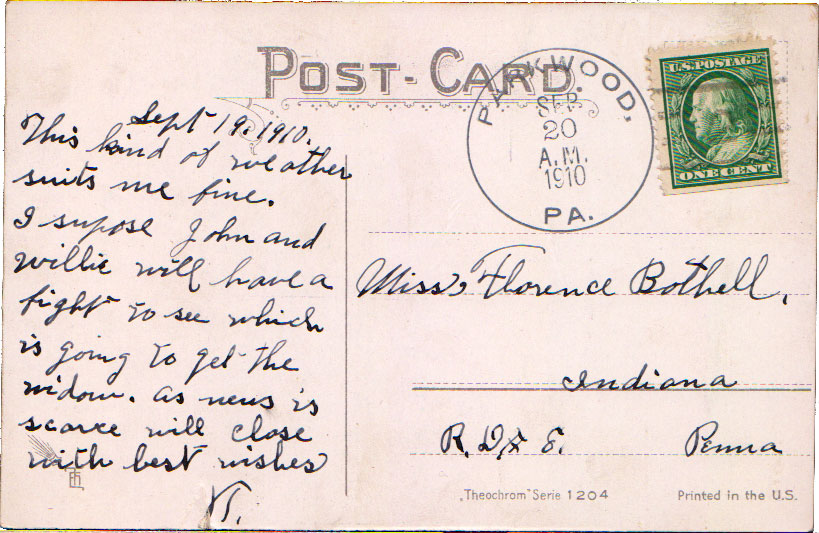 POST-CARD.
Sept 19. 1910.
This kind of weather
suits me fine.
I supose John and
Willie will have a
fight to see which
is going to get the
widow. as news is
scarce will close
with best wishes
PARKWOOD,
SEP
20
A.M.
1910
PA.
U.S. POSTAGE
ONE CENT
Miss, Florence Bothell,
Indiana
Penna
„Theochrom" Serie 1204
Printed in the U.S.